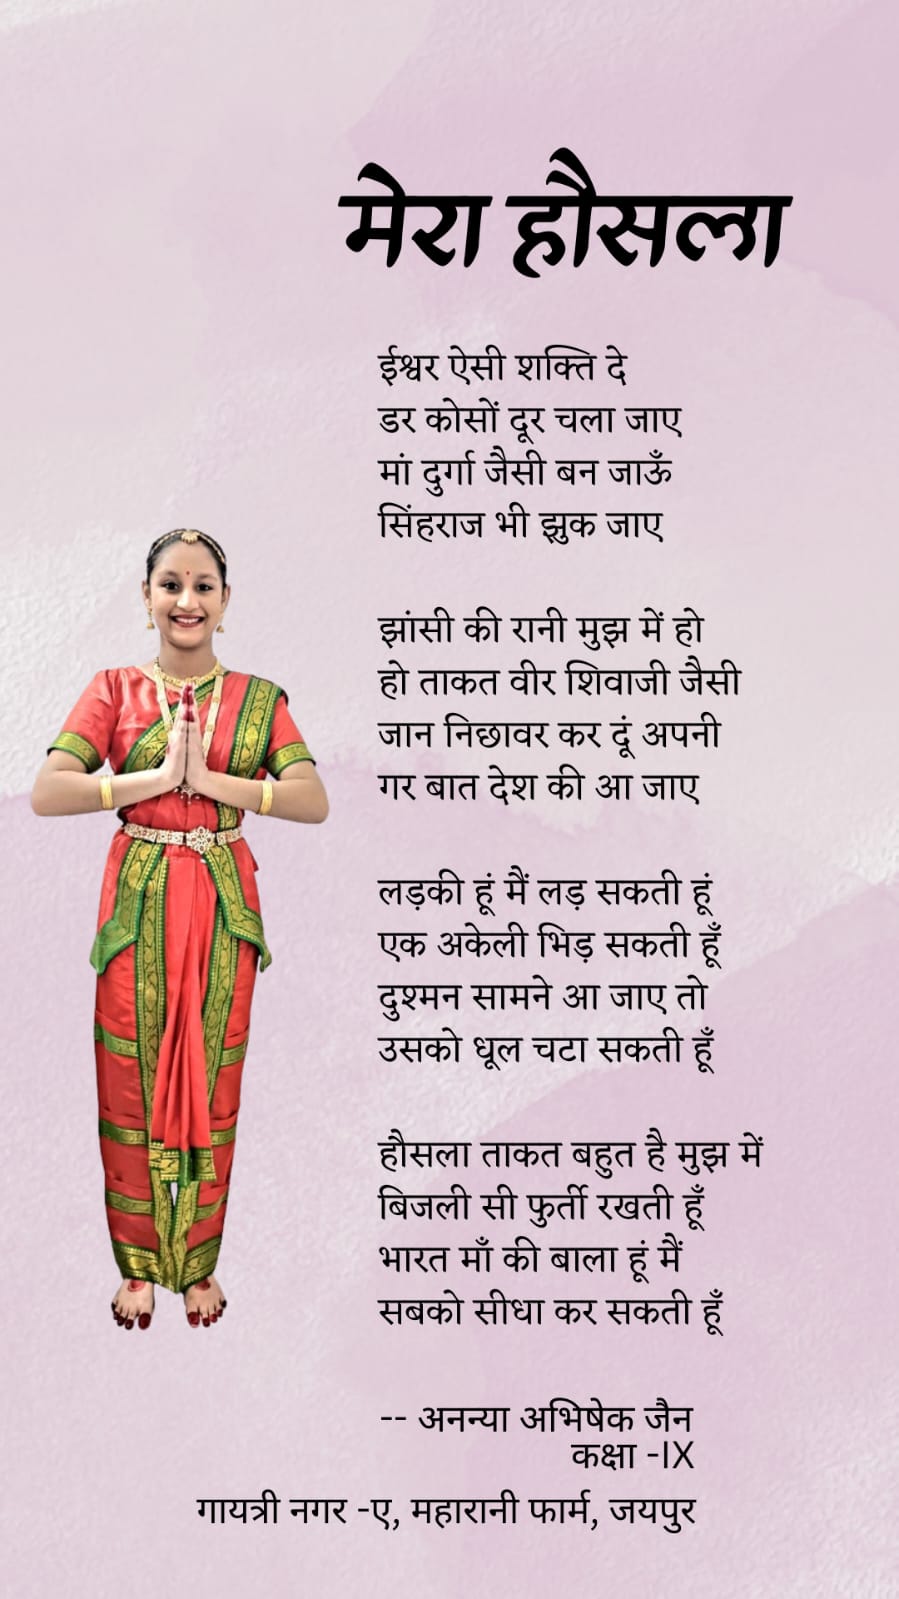 मेरा हौसला
ईश्वर ऐसी शक्ति दे
डर कोसों दूर चला जाए
मां दुर्गा जैसी बन जाऊँ
सिंहराज भी झुक जाए
झांसी की रानी मुझ में हो
हो ताकत वीर शिवाजी जैसी
जान निछावर कर दूं अपनी
गर बात देश की आ जाए
लड़की हूं मैं लड़ सकती हूं
एक अकेली भिड़ सकती हूँ
दुश्मन सामने आ जाए तो
उसको धूल चटा सकती हूँ
हौसला ताकत बहुत है मुझ में
बिजली सी फुर्ती रखती हूँ
भारत माँ की बाला हूं मैं
सबको सीधा कर सकती हूँ
-- अनन्या अभिषेक जैन
कक्षा -IX
गायत्री नगर -ए, महारानी फार्म, जयपुर